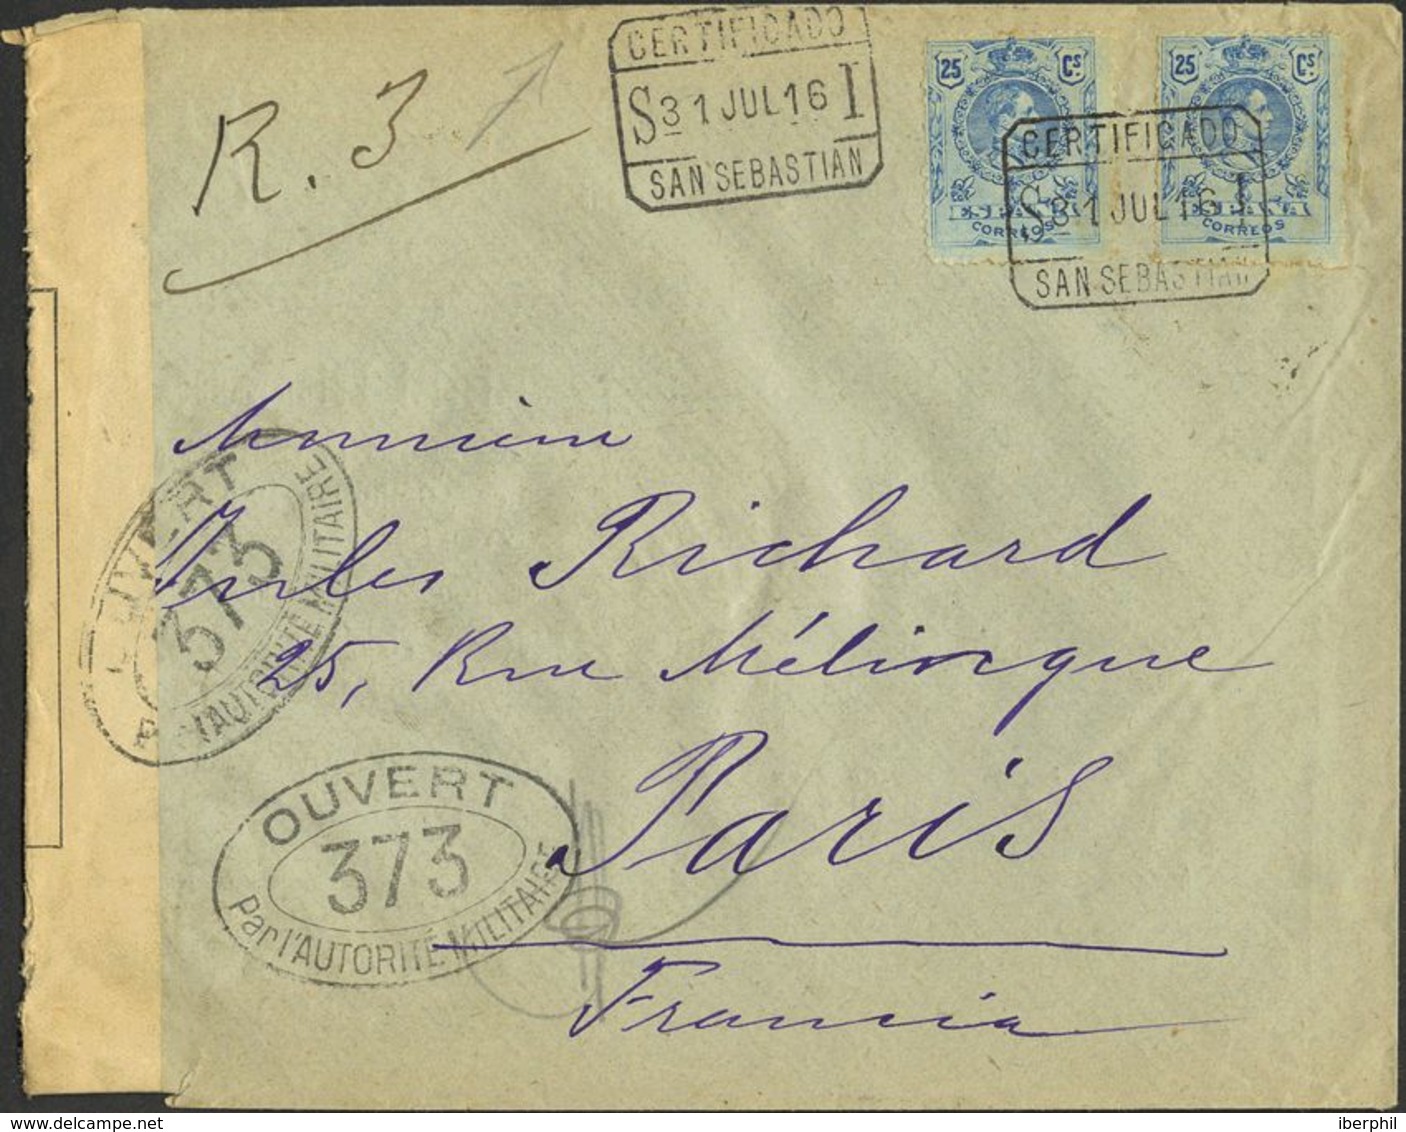 R. 3
CERTIFICADO
31 JUL 16
SAN SEBASTIAN
25 Cs.
CORREOS
25 Cs.
CORREOS
CERTIFICADO
31 JUL 16
SAN SEBASTIAN
Monsieur
Jules Richard
25, Rue Mélingue
Paris
Francia
OUVERT
373
Par l'AUTORITÉ MILITAIRE
OUVERT
373
Par l'AUTORITÉ MILITAIRE
iberphil
delcampe.net